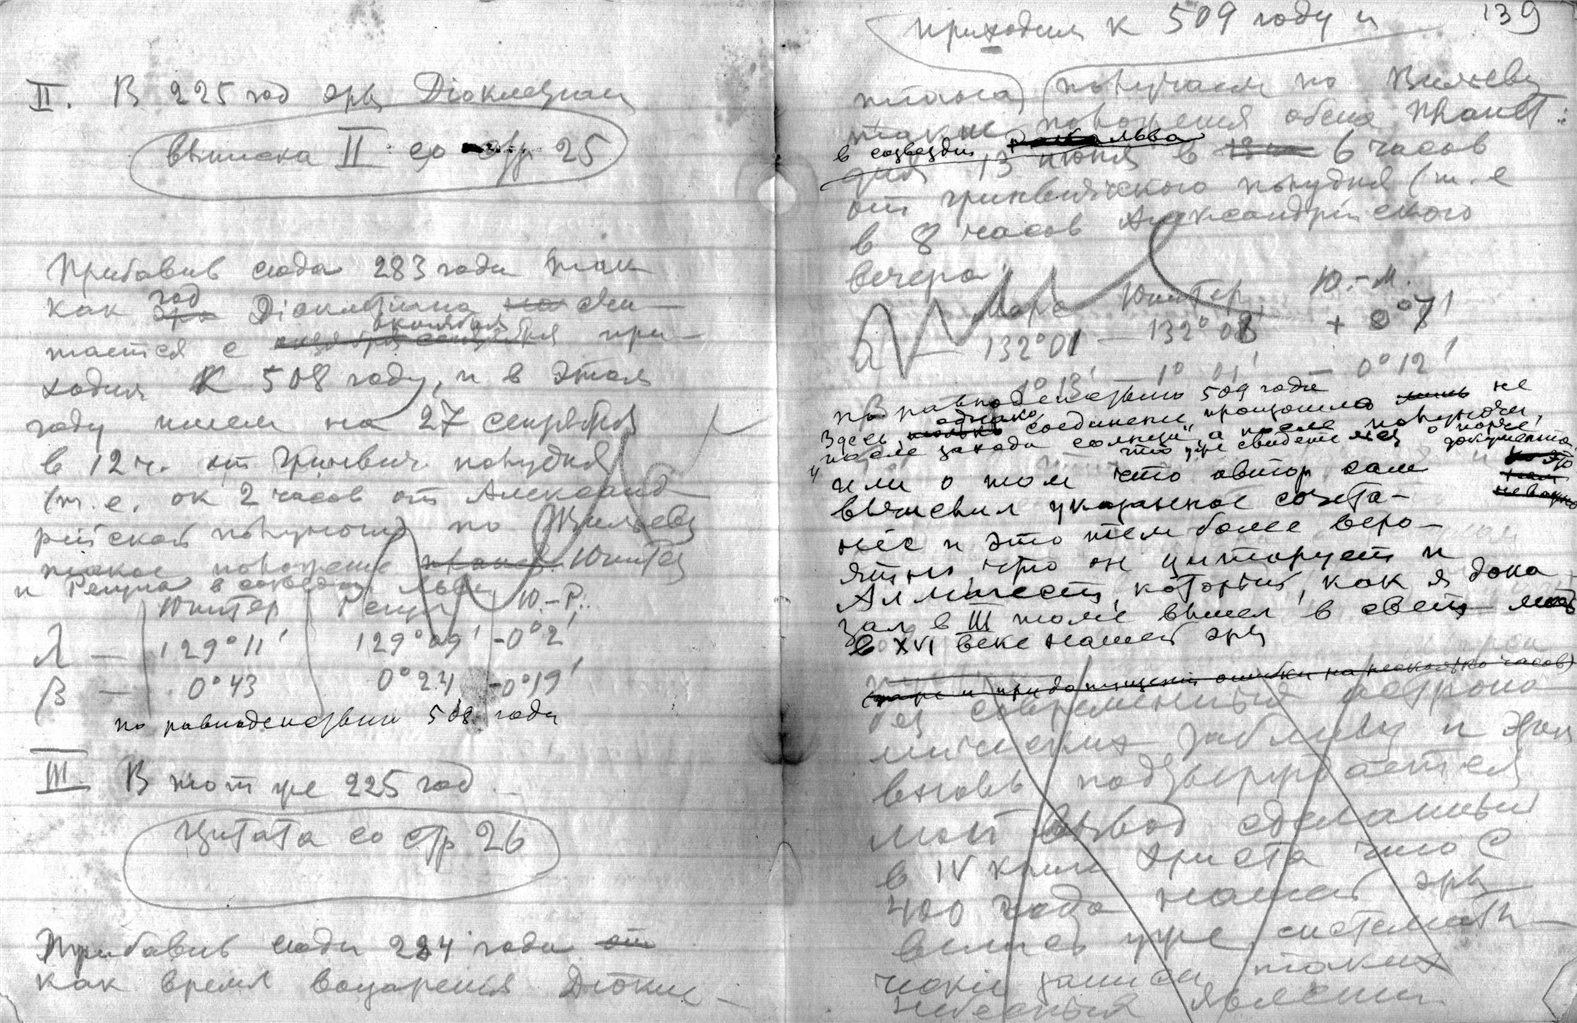 II. В 225 год эры Дiоклецiана
Выписка II со стр 25
Прибавив сюда 283 года так
как год Дiоклетiана счи-
тается с октября при-
ходим к 508 году, и в этом
году имеем на 27 сентября
в 12 ч. от Гринвич. полудня
(т.е. ок 2 часов от Александ-
рiйской полуночи) по Вильеву
такое положение Юпитера
и Регула в созвездии Льва
Юпитер Регул Ю.-Р.
λ — 129°11' 129°09' -0°2'
β — 0°43 0°24 -0°19'
по равноденствию 508 года
III. В тот же 225 год
Цитата со стр 26
Прибавив сюда 284 года
как время воцарения Дiокле-
139
приходим к 509 году и
получаем по Вильеву
такие положения обеих планет:
в созвездии Льва
для 13 июня в 6 часов
от гринвичского полудня (т.е
в 8 часов Александрiйского
вечера)
Марс Юпитер Ю.-М.
λ — 132°01 — 132°08 + 0°7'
1°13' 1°01' — 0°12'
по равноденствию 509 года
Здесь однако соединение произошло не
"после захода солнца", а после полуночи,
что уже свидетельствует о порче документа
или о том что автор сам
вычислил указанное сочета-
нiе и это тем более веро-
ятно, что он цитирует и
Алмагест, который, как я дока
зал в III томе вышел в свет
в XVI веке нашей эры
(даже и при допущении ошибки на несколько часов)
без современных астроно
мических таблиц и этим
вновь подтверждается
мой вывод сделанный
в IV книге Христа что с
400 года нашей эры
велись уже системати-
ческие записи таких
небесных явлений